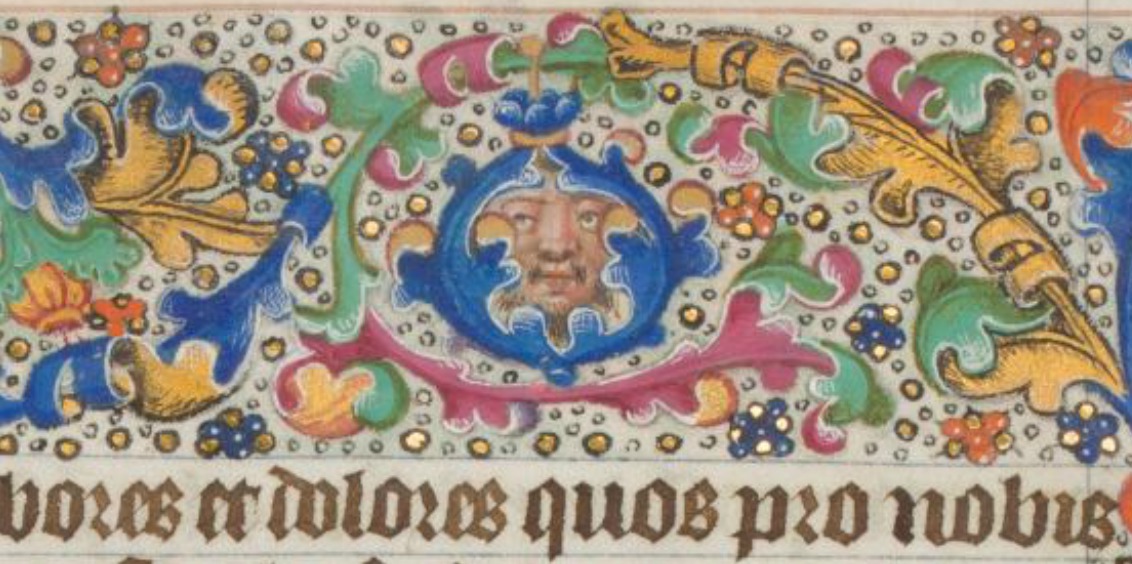 bores et dolores quos pro nobis